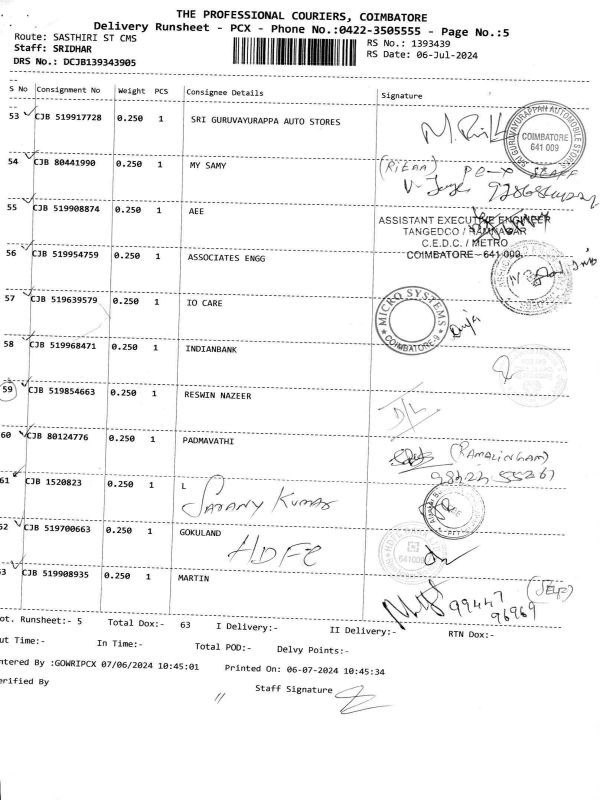 THE PROFESSIONAL COURIERS, COIMBATORE
Delivery Runsheet - PCX - Phone No.:0422-3505555 - Page No.:5
Route: SASTHIRI ST CMS
RS No.: 1393439
Staff: SRIDHAR
RS Date: 06-Jul-2024
DRS No.: DCJB139343905
S No Consignment No Weight PCS Consignee Details Signature
53 CJB 519917728 0.250 1 SRI GURUVAYURAPPA AUTO STORES
SRI GURUVAYURAPPAN AUTOMOBILE STORES
COIMBATORE
641 009
54 CJB 80441990 0.250 1 MY SAMY
55 CJB 519908874 0.250 1 AEE
ASSISTANT EXECUTIVE ENGINEER
TANGEDCO / RAMNAGAR
C.E.D.C. / METRO
COIMBATORE - 641 009.
56 CJB 519954759 0.250 1 ASSOCIATES ENGG
57 CJB 519639579 0.250 1 IO CARE
MICRO SYSTEMS
COIMBATORE-9
58 CJB 519968471 0.250 1 INDIANBANK
59 CJB 519854663 0.250 1 RESWIN NAZEER
D/L
60 CJB 80124776 0.250 1 PADMAVATHI
(RAMALINGAM)
61 CJB 1520823 0.250 1 L
SARANY KUMAR
52 CJB 519700663 0.250 1 GOKULAND
HDFC
641009
53 CJB 519908935 0.250 1 MARTIN
(SELF)
99447
96969
ot. Runsheet:- 5 Total Dox:- 63 I Delivery:- II Delivery:- RTN Dox:-
ut Time:- In Time:- Total POD:- Delvy Points:-
ntered By :GOWRIPCX 07/06/2024 10:45:01 Printed On: 06-07-2024 10:45:34
erified By
Staff Signature